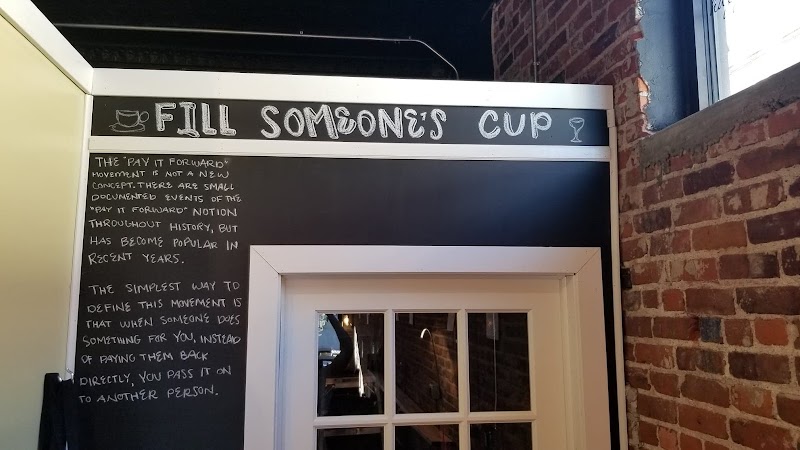 FILL SOMEONE'S CUP
THE "PAY IT FORWARD"
MOVEMENT IS NOT A NEW
CONCEPT. THERE ARE SMALL
DOCUMENTED EVENTS OF THE
"PAY IT FORWARD" NOTION
THROUGHOUT HISTORY, BUT
HAS BECOME POPULAR IN
RECENT YEARS.
THE SIMPLEST WAY TO
DEFINE THIS MOVEMENT IS
THAT WHEN SOMEONE DOES
SOMETHING FOR YOU, INSTEAD
OF PAYING THEM BACK
DIRECTLY, YOU PASS IT ON
TO ANOTHER PERSON.